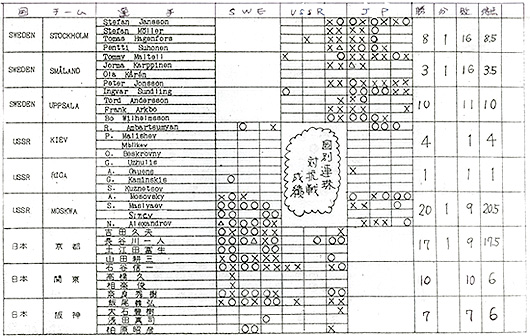 国 チーム 選手 S W E USSR J P 勝 分 敗 得点
SWEDEN STOCKHOLM Stefan Jansson
Stefan Möller
Tomas Hagenfors
Pentti Suhonen
8 1 16 8.5
SWEDEN SMÅLAND Tommy Maltell
Jorma Karppinen
Ola Kårén
Peter Jonsson
3 1 16 3.5
SWEDEN UPPSALA Ingvar Sundling
Tord Andersson
Frank Arkbo
Bo Wilhelmsson
10 11 10
USSR KIEV R. Ambartsumyan
P. Malishev
Malikov
O. Beskrovny
4 1 4
USSR RIGA G. Uzhulis
A. Gauens
G. Kaminskis
S. Kuznetsov
1 1 1
USSR MOSKWA A. Nosovsky
S. Maslyaev
Sitev
N. Alexandrov
20 1 9 20.5
日本 京都 吉田久夫
長谷川一人
土江田富生
山田耕三
17 1 9 17.5
日本 関東 石谷信一
高橋久
相楽優
奈良秀樹
10 10 6
日本 阪神 飯尾義弘
大石豊樹
浅田真司
柏原昭彦
7 7 6
国別連珠
対抗戦
成績